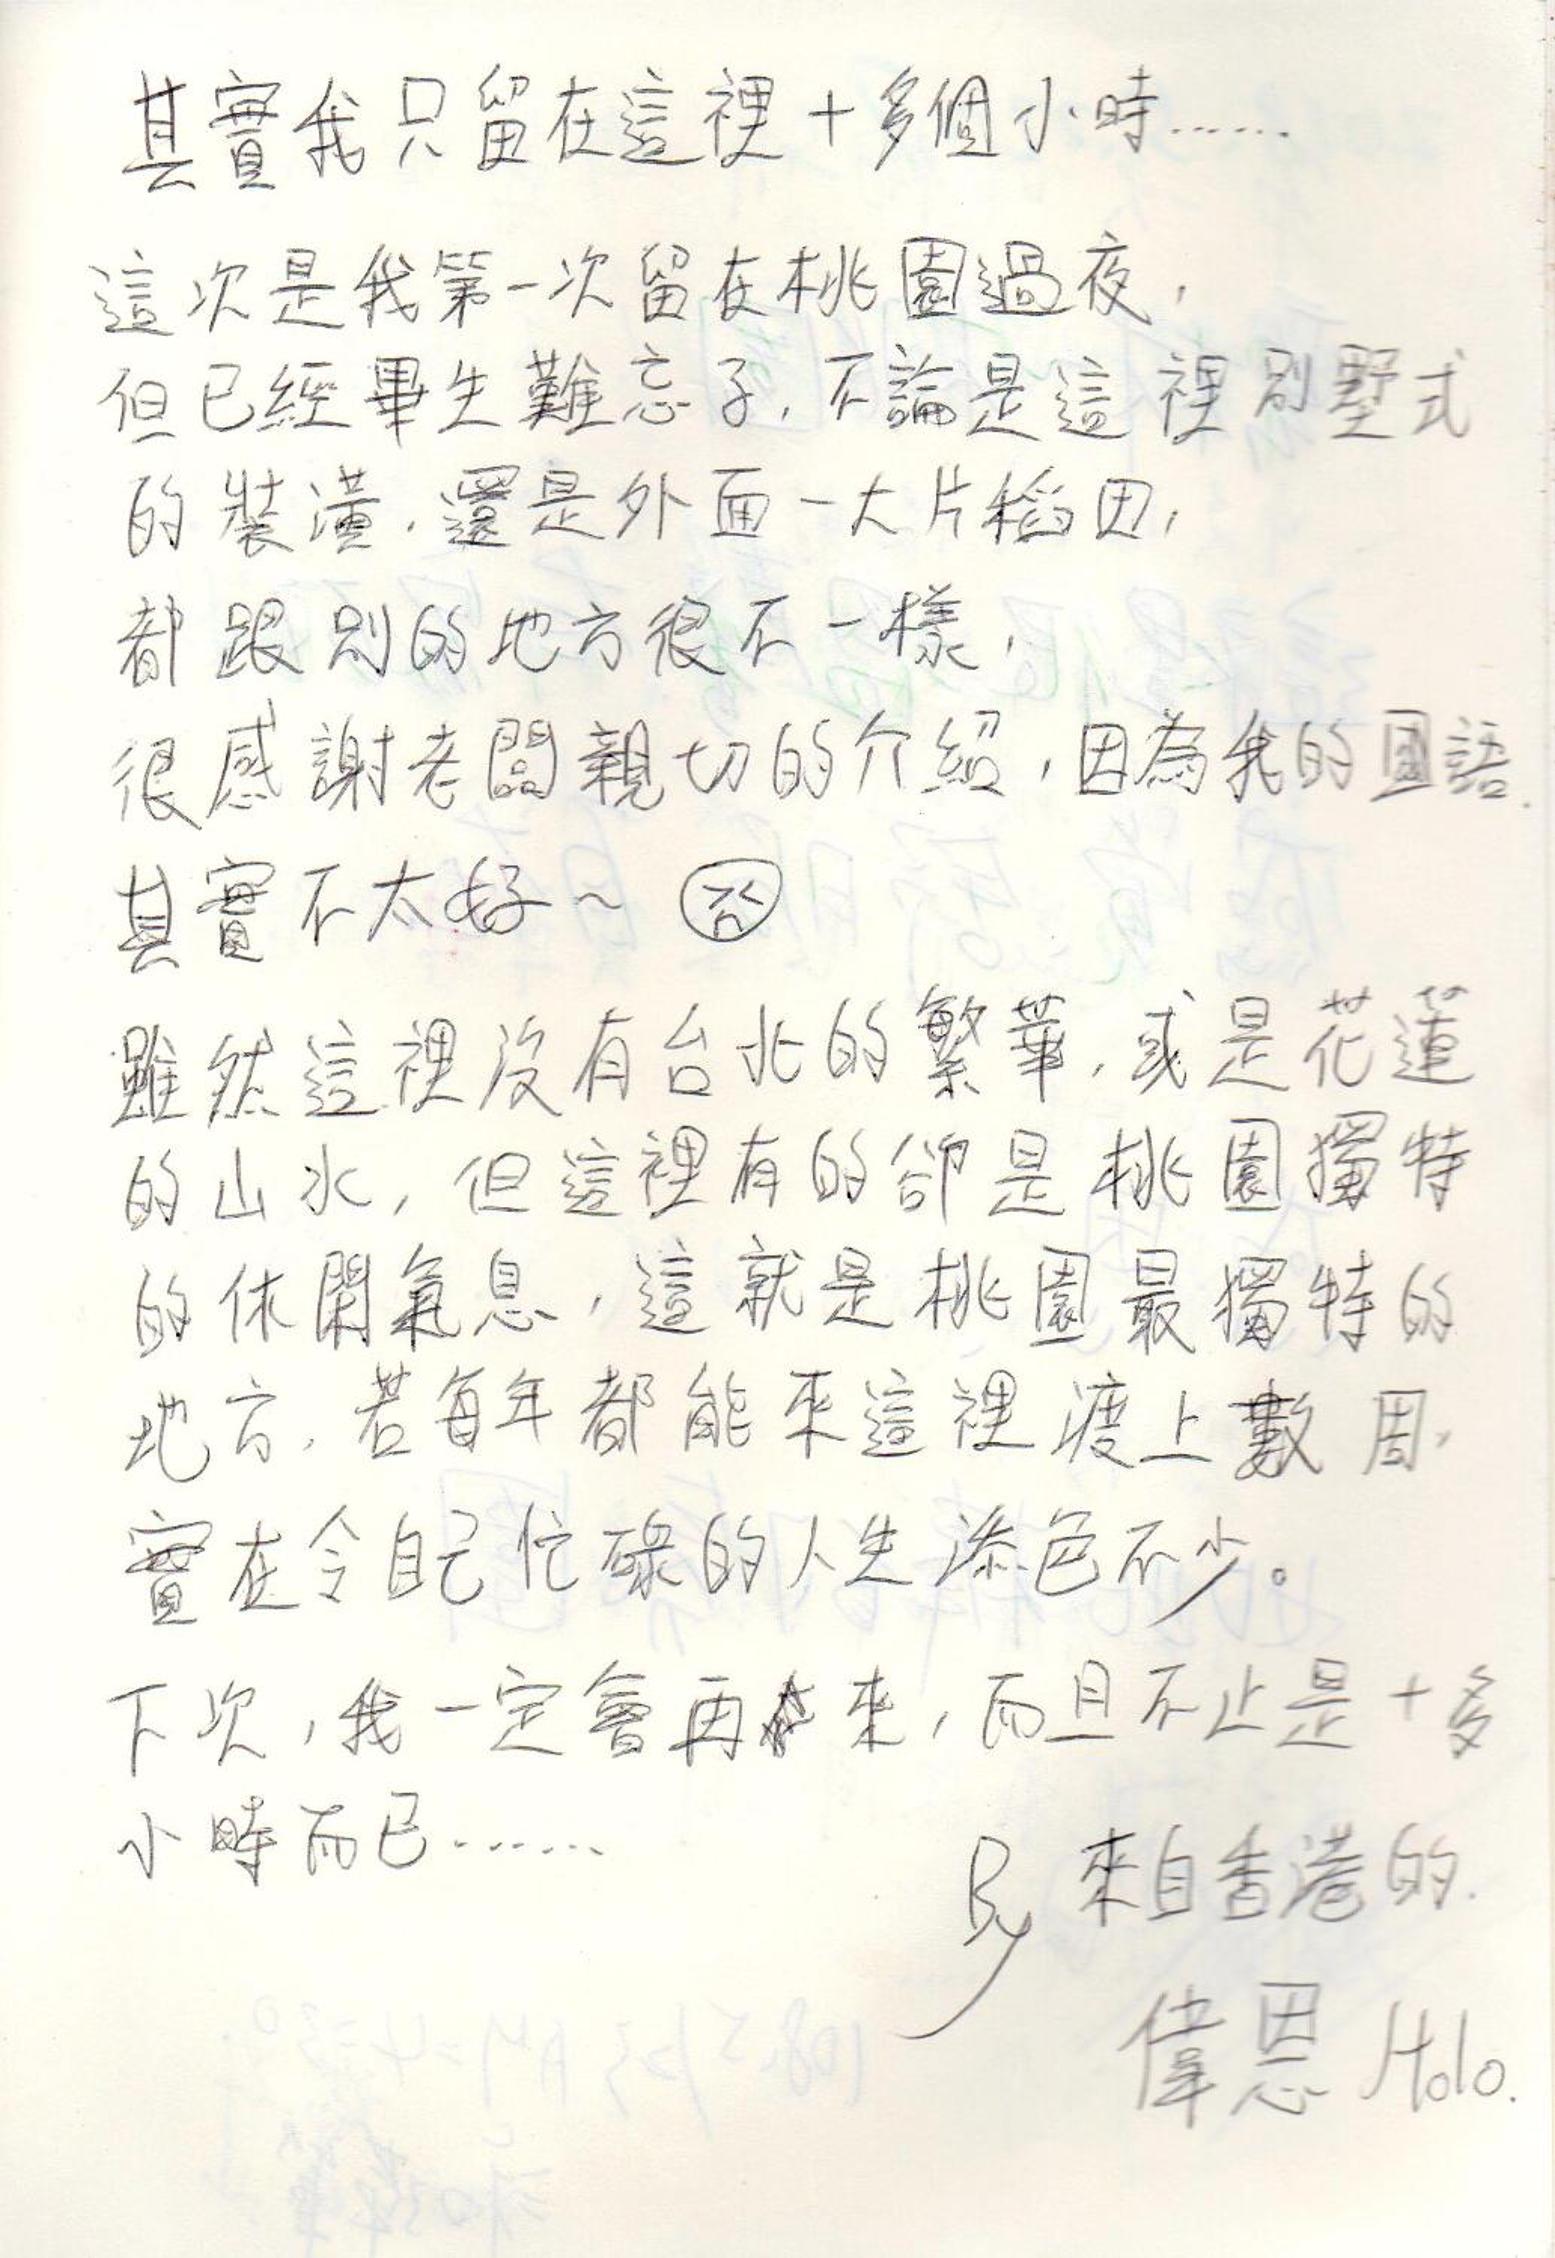 其實我只留在這裡十多個小時……
這次是我第一次留在桃園過夜，
但已經畢生難忘了，不論是這裡別墅式
的裝潢，還是外面一大片稻田，
都跟別的地方很不一樣，
很感謝老闆親切的介紹，因為我的國語
其實不太好~
雖然這裡沒有台北的繁華，或是花蓮
的山水，但這裡有的卻是桃園獨特
的休閑氣息，這就是桃園最獨特的
地方，若每年都能來這裡渡上數周，
實在令自己忙碌的人生添色不少。
下次，我一定會再來，而且不止是十多
小時而已……
By 來自香港的.
偉恩 Holo.